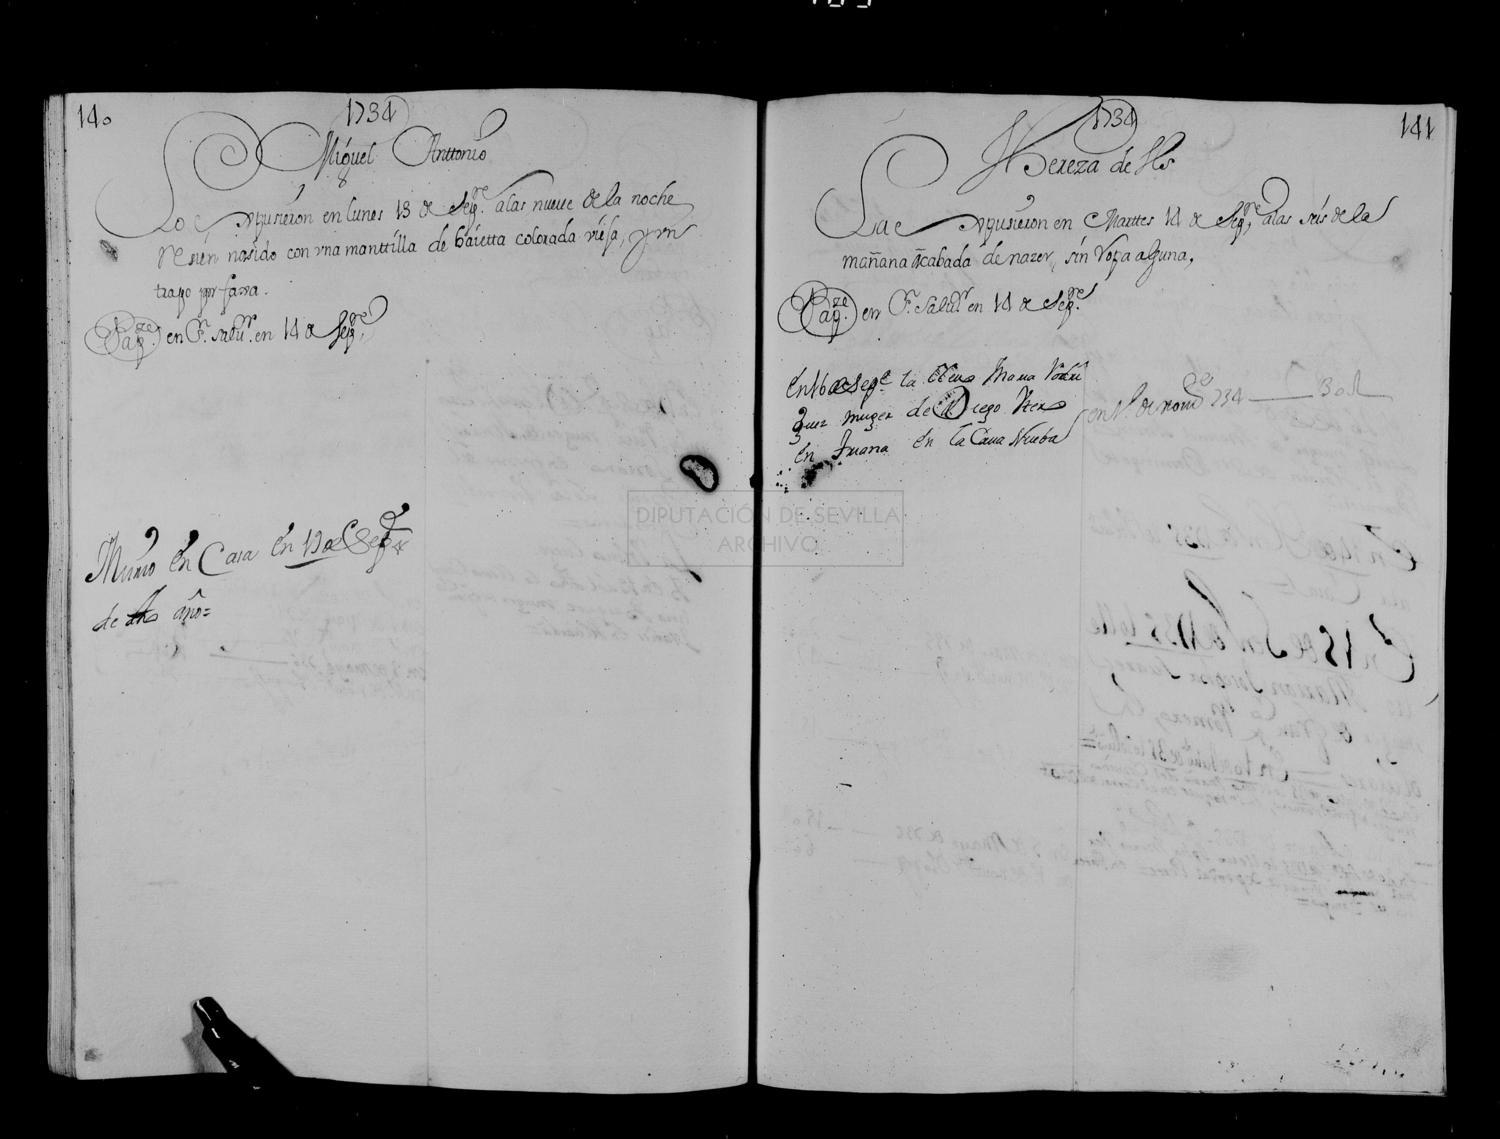 140
1734
Miguel Anttonio
Lo expusieron en lunes 13 de Sepre. a las nueve de la noche
resien nasido con vna manttilla de baietta colorada viefa, y vn
trapo por faxa.
Bapze. en Sr. Salvr. en 14 de Sepre.
Murio en Casa en 19 de Sepe
de dho año=
1734
141
Thereza de Jhs
La expusieron en Marttes 14 de Sepre. a las seis de la
mañana acabada de nazer, sin ropa alguna,
Bapze. en Sr. Salvr. en 14 de Sepre.
En 16 de Sepe. la llevo Maria Rodri
guez muger de Diego
en Juana en la Caua Nueba
en 1º de nove 734 30 rl
DIPUTACIÓN DE SEVILLA
ARCHIVO